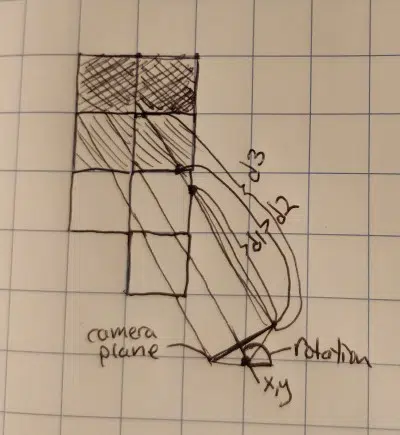 d3
d2
d1
camera
plane
rotation
x,y